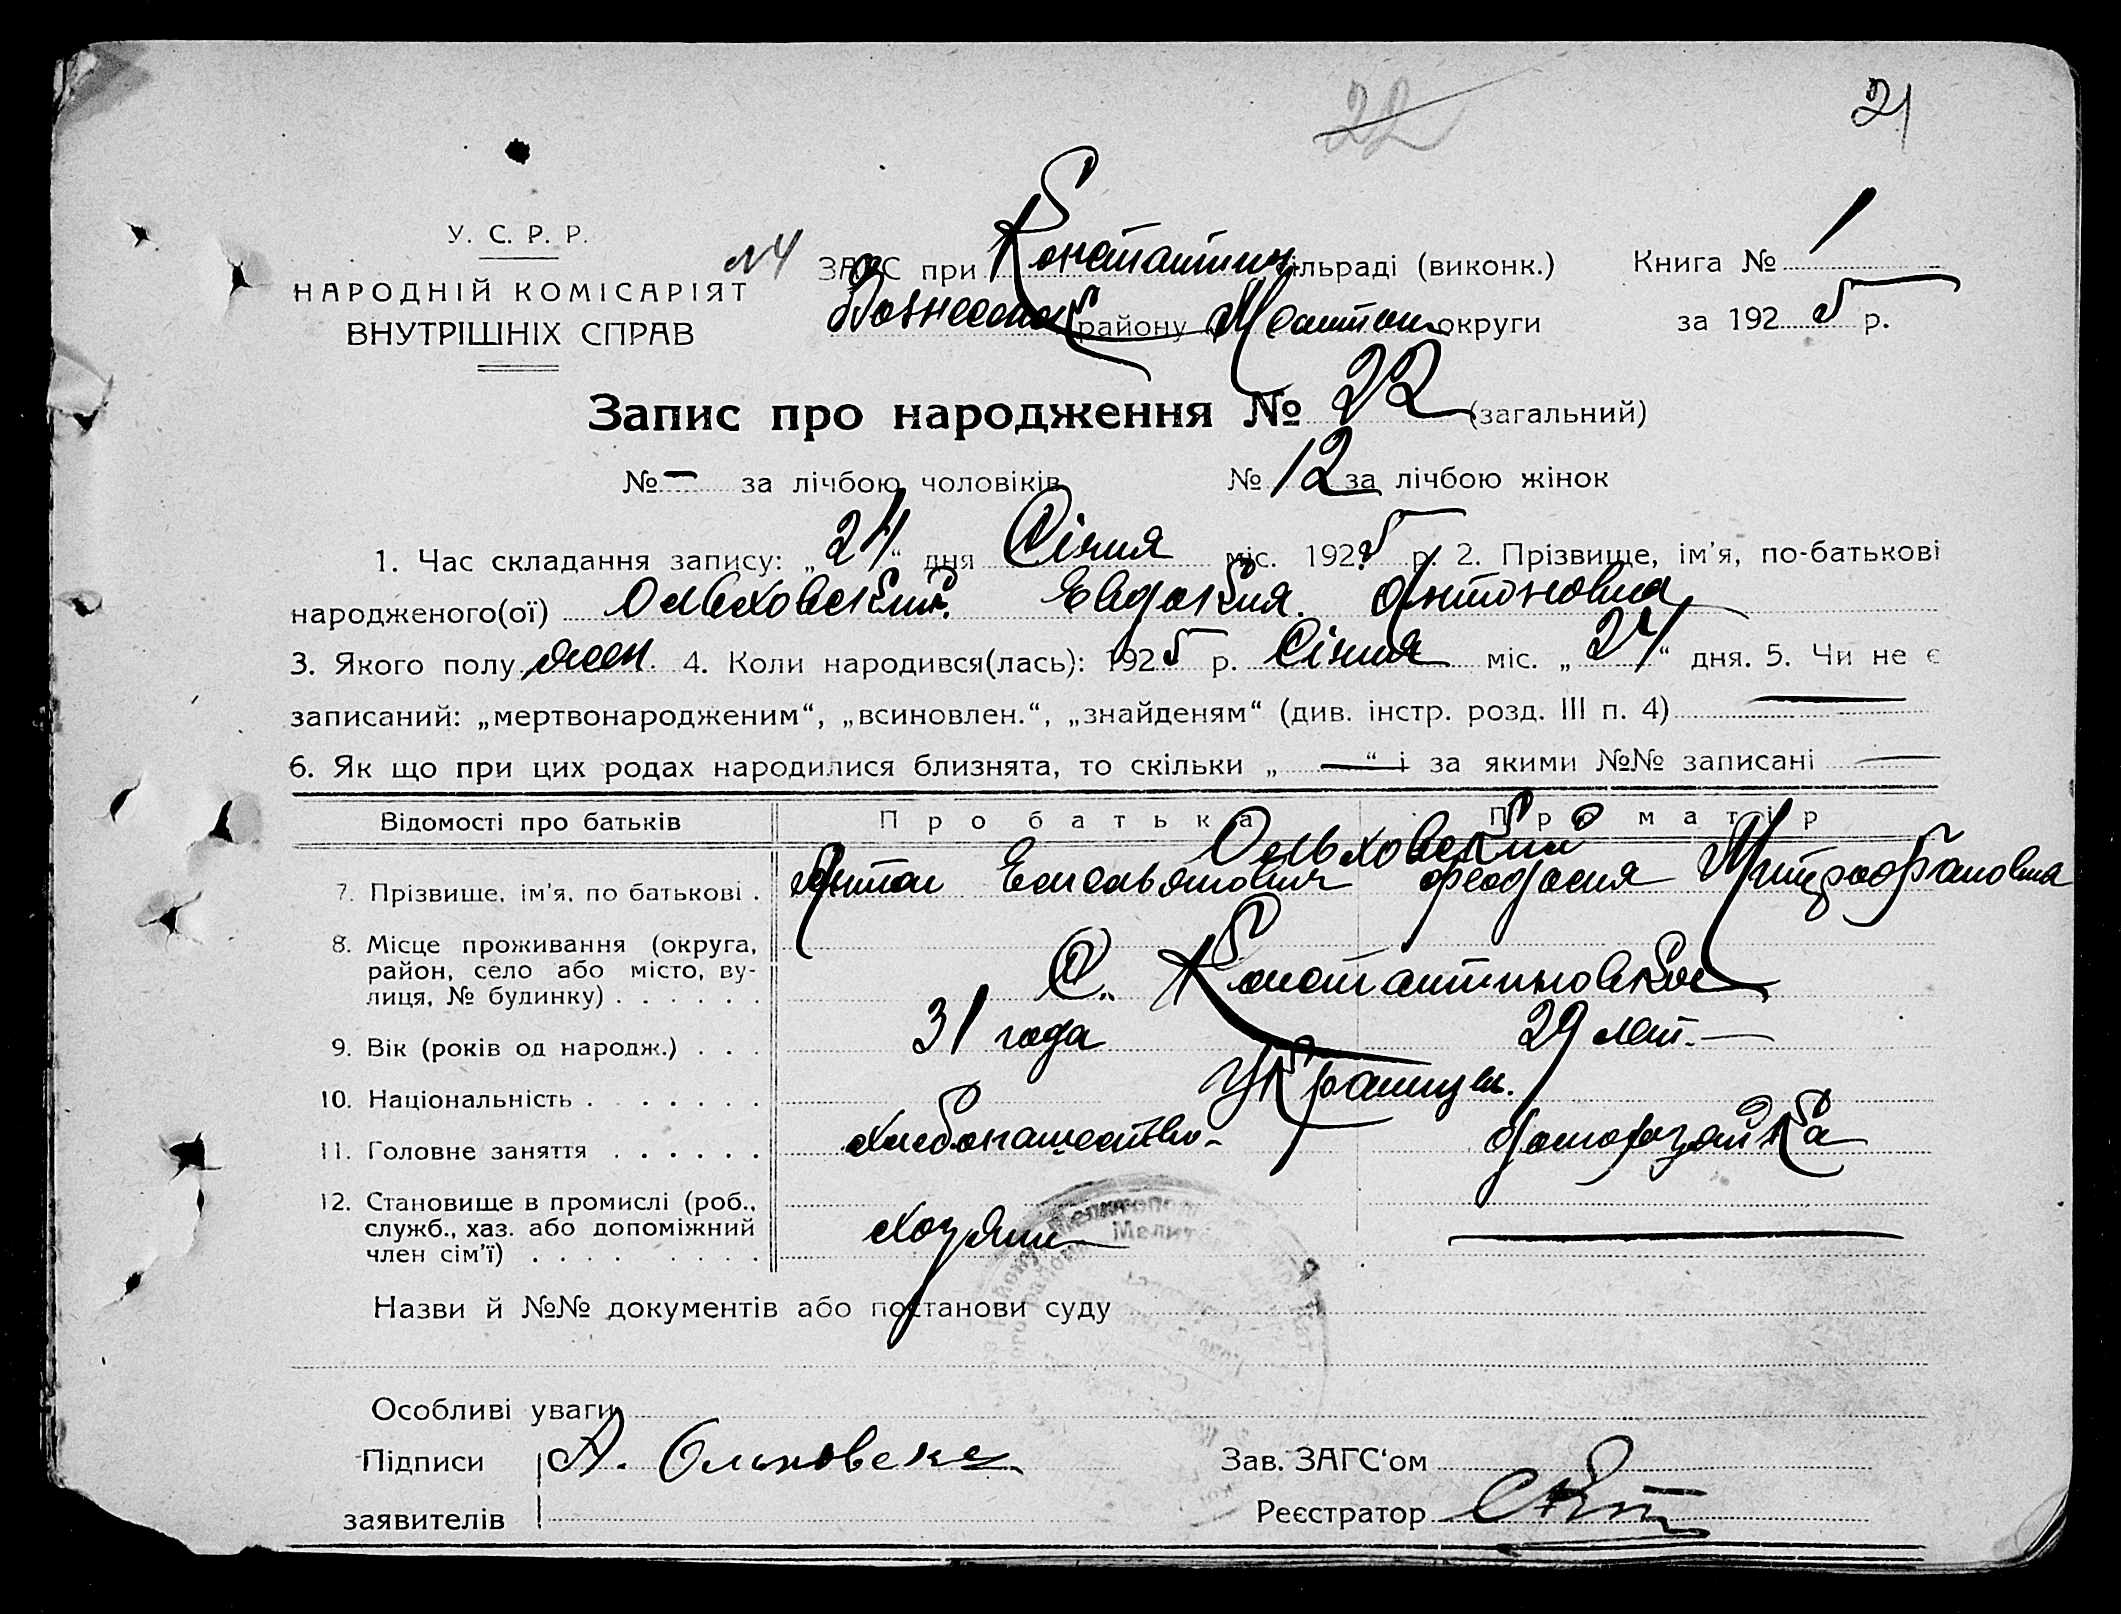 22 21
У. С. Р. Р.
НАРОДНІЙ КОМІСАРІЯТ
ВНУТРІШНІХ СПРАВ
№4 ЗАГС при Константин. сільраді (виконк.) Книга № 1
Вознесенск району округи за 1925 р.
Запис про народження № 22 (загальний)
№ – за лічбою чоловіків № 12 за лічбою жінок
1. Час складання запису: „24“ дня Січня міс. 1925 р. 2. Прізвище, ім'я, по-батькові
народженого(ої) Ольховский. Евдокия. Антоновна
3. Якого полу жен. 4. Коли народився(лась): 1925 р. Січня міс. „24“ дня. 5. Чи не є
записаний: „мертвонародженим“, „всиновлен.“, „знайденям“ (див. інстр. розд. III п. 4) —
6. Як що при цих родах народилися близнята, то скільки „ — “ і за якими №№ записані —
Відомості про батьків Про батька Про матір
Ольховский
7. Прізвище, ім'я, по батькові . Антон Емельянович Феодосия Митрофановна
8. Місце проживання (округа,
район, село або місто, ву-
лиця, № будинку) . . . . . . С. Константиновка
9. Вік (років од народж.) . . . 31 года 29 лет. —
10. Національність . . . . . . . Украинцы.
11. Головне заняття . . . . . . Хлебопашество- домохозяйка
12. Становище в промислі (роб.,
служб., хаз. або допоміжний
член сім'ї) . . . . . . . . . Хозяин —
Назви й №№ документів або постанови суду
Особливі уваги
Підписи А. Ольховский Зав. ЗАГС'ом
заявителів Реєстратор